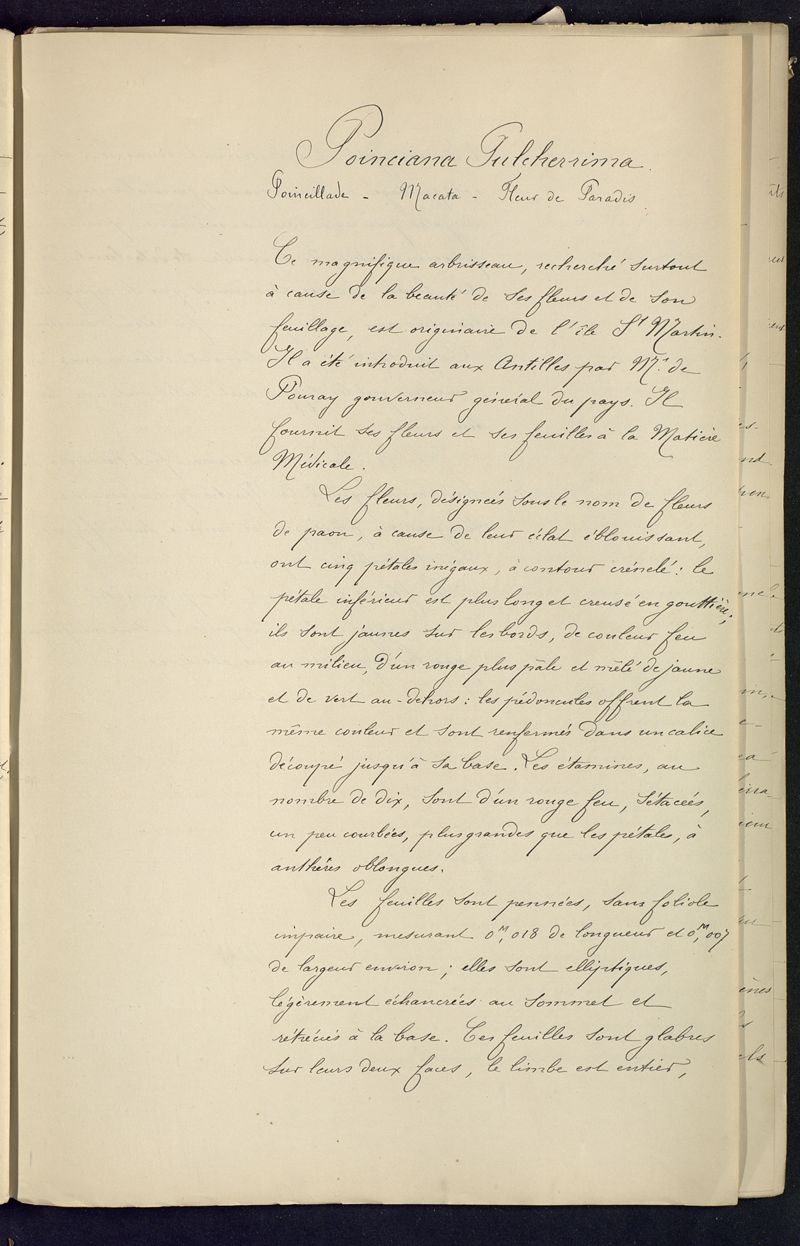 Poinciana Pulcherrima.
Poincillade - Macata - Fleur de Paradis.
Ce magnifique arbrisseau, recherché surtout
à cause de la beauté de ses fleurs et de son
feuillage, est originaire de l'île St Martin.
Il a été introduit aux Antilles par Mr. de
Pouray gouverneur général du pays. Il
fournit ses fleurs et ses feuilles à la Matière
Médicale.
Les fleurs, désignées sous le nom de fleurs
de paon, à cause de leur éclat éblouissant,
ont cinq pétales inégaux, à contour crénelé: le
pétale inférieur est plus long et creusé en gouttière;
ils sont jaunes sur les bords, de couleur feu
au milieu, d'un rouge plus pâle et mêlé de jaune
et de vert au-dehors: les pédoncules offrent la
même couleur et sont renfermés dans un calice
découpé jusqu'à sa base. Les étamines, au
nombre de dix, sont d'un rouge feu, sétacées,
un peu courbées, plus grandes que les pétales, à
anthères oblongues.
Les feuilles sont pennées, sans foliole
impaire, mesurant 0m,018 de longueur et 0m,007
de largeur environ; elles sont elliptiques,
légèrement échancrées au sommet et
rétrécies à la base. Ces feuilles sont glabres
sur leurs deux faces, le limbe est entier,